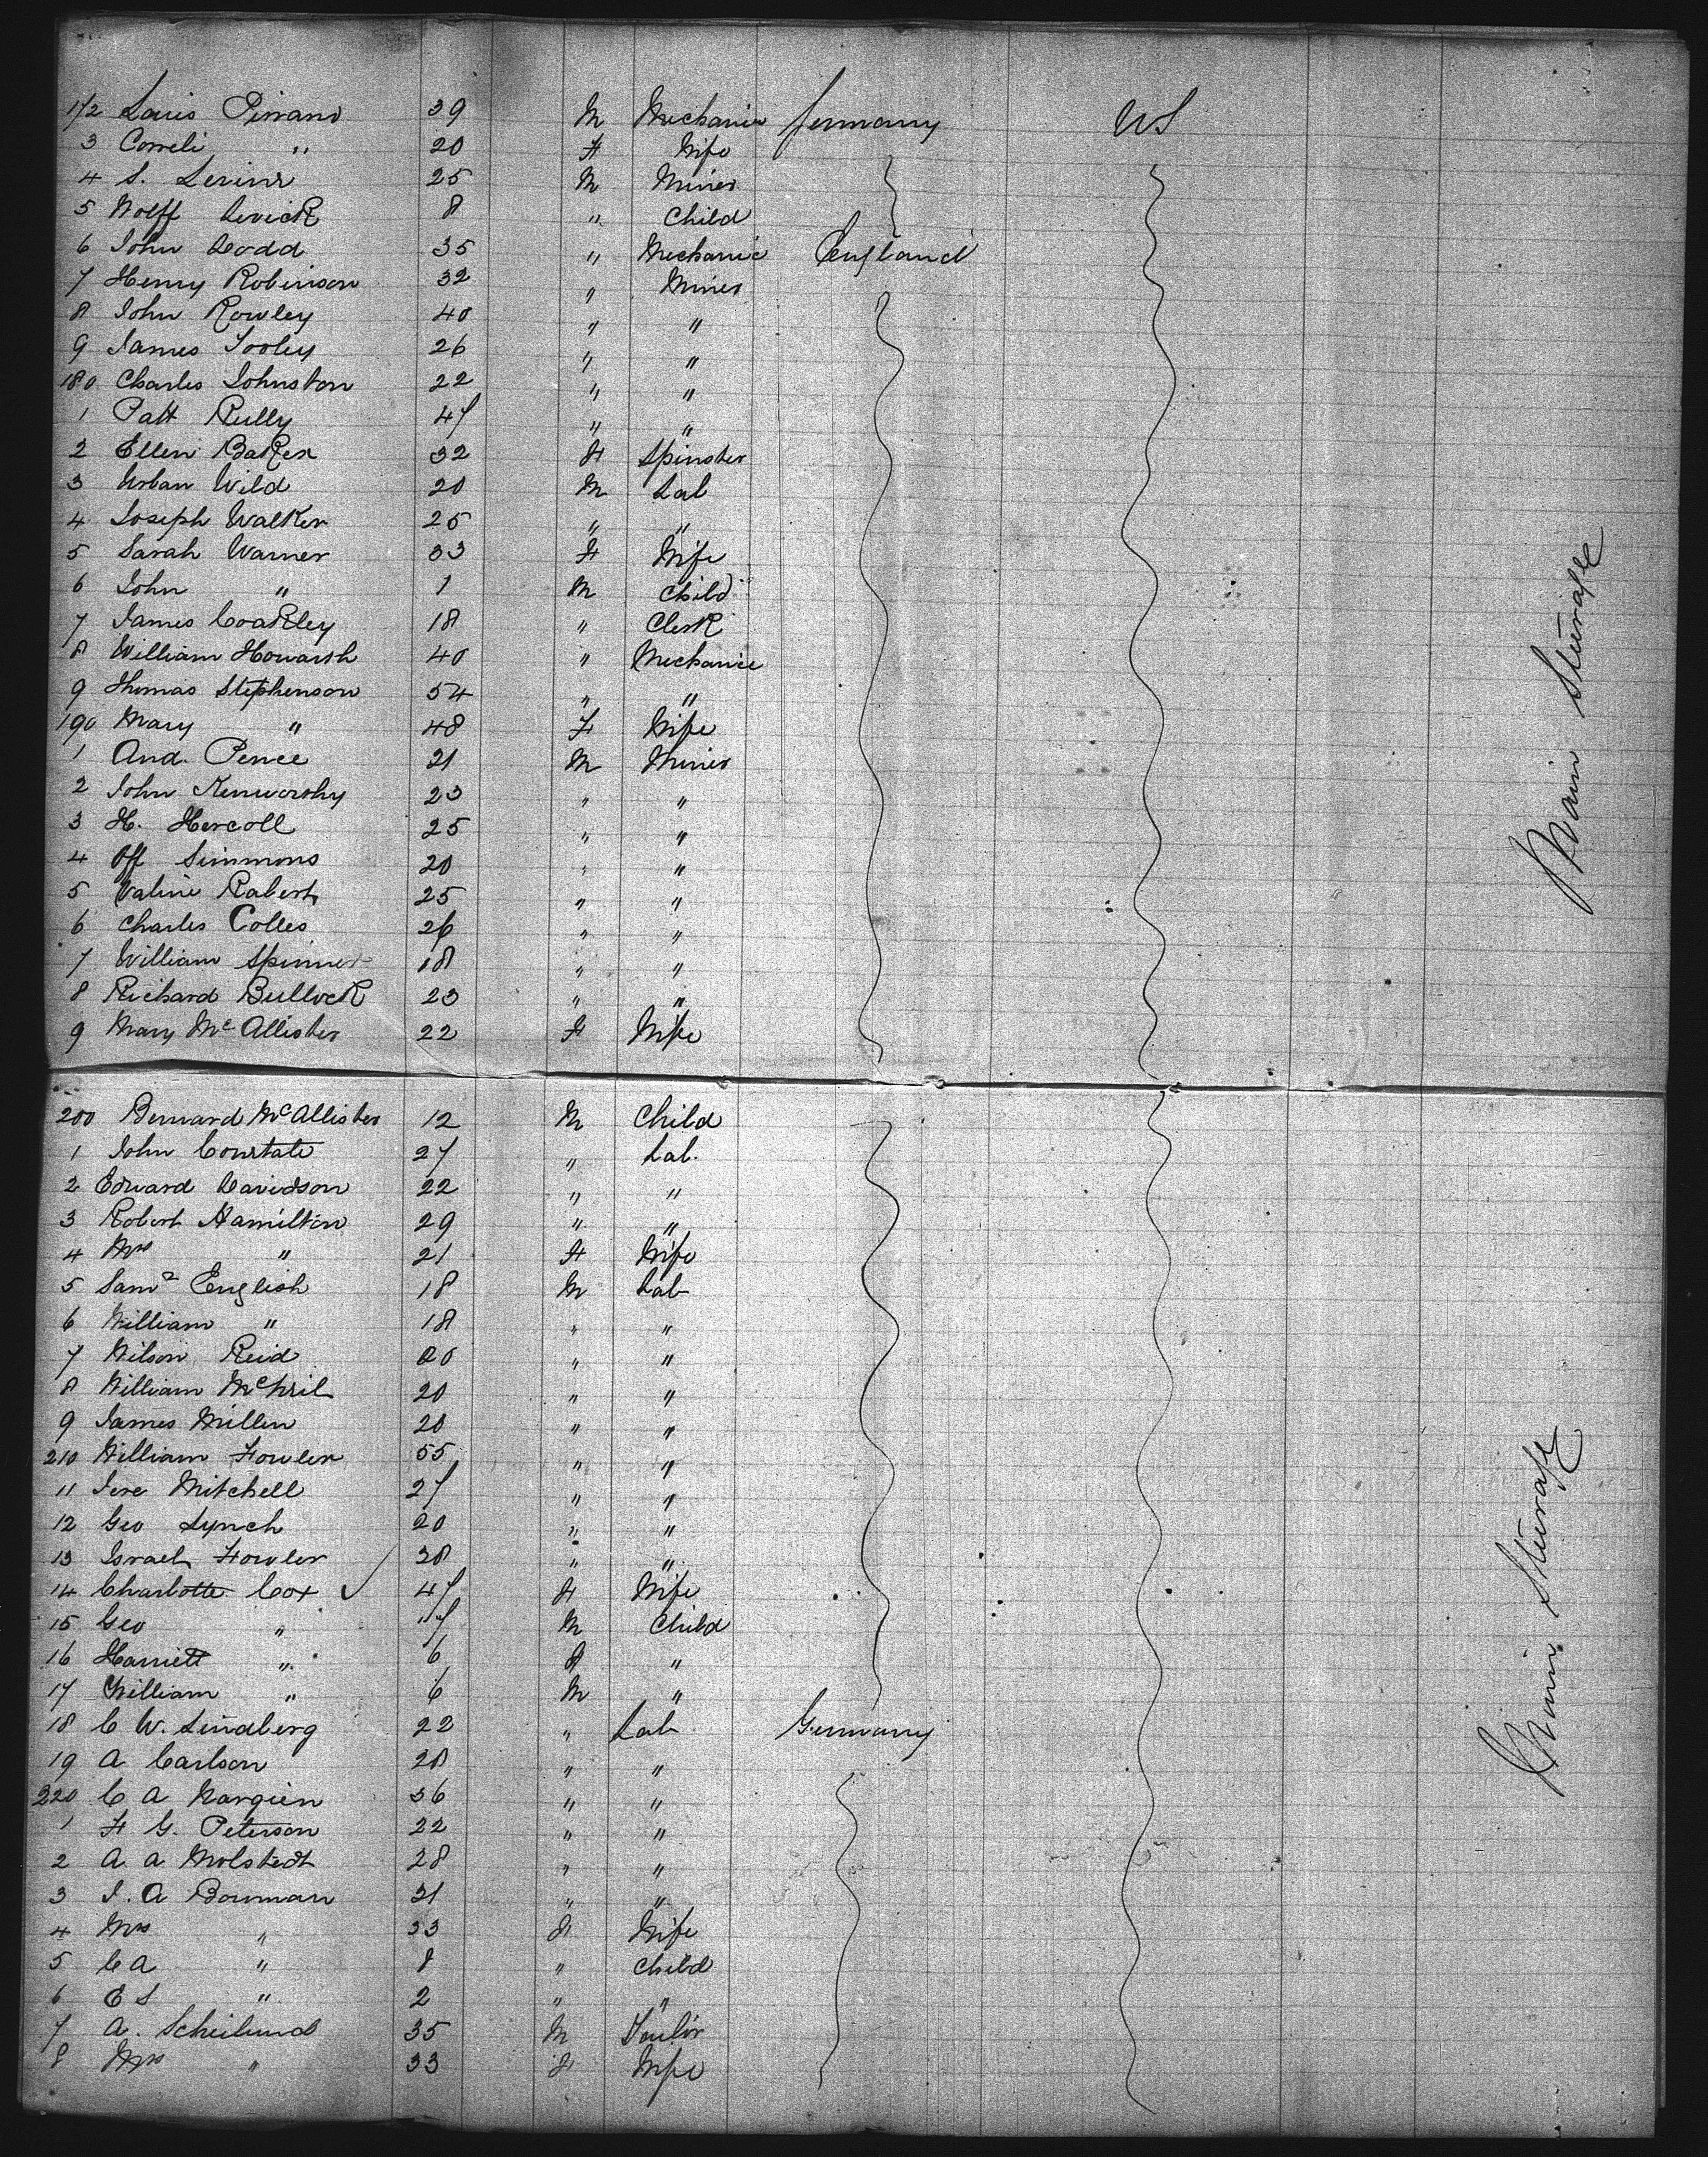 172 Louis Pirrano 39 M Mechanic Germany US
3 Correli " 20 F Wife
4 S. Levine 25 M Miner
5 Wolff Levick 8 " Child
6 John Dodd 35 " Mechanic England
7 Henry Robinson 32 " Miner
8 John Rowley 40 " "
9 James Tooley 26 " "
180 Charles Johnston 22 " "
1 Patt Rully 47 " "
2 Ellen Baker 32 F Spinster
3 Urban Wild 20 M Lab
4 Joseph Walker 25 " "
5 Sarah Warner 33 F Wife
6 John " 1 M Child
7 James Coakley 18 " Clerk
8 William Howarth 40 " Mechanic
9 Thomas Stephenson 54 " "
190 Mary " 48 F Wife
1 And. Pence 21 M Miner
2 John Kenworthy 23 " "
3 H. Hercoll 25 " "
4 Off Simmons 20 " "
5 Valine Rabert 25 " "
6 Charles Colles 26 " "
7 William Spinner 18 " "
8 Richard Bullock 23 " "
9 Mary McAllister 22 F Wife
Main Steerage
200 Bernard McAllister 12 M Child
1 John Courtate 27 " Lab.
2 Edward Davidson 22 " "
3 Robert Hamilton 29 " "
4 Mrs " 21 F Wife
5 Saml English 18 M Lab
6 William " 18 " "
7 Wilson Reid 20 " "
8 William 20 " "
9 James Millen 20 " "
210 William Fowler 55 " "
11 Jere Mitchell 27 " "
12 Geo Lynch 20 " "
13 Israel Fowler 38 " "
14 Charlotte Cox ✓ 47 F Wife
15 Geo " 17 M Child
16 Harriett " 6 F "
17 William " 6 M "
18 C W. Lindberg 22 " Lab Germany
19 A Carlson 28 " "
220 C A Nargien 36 " "
1 F G. Peterson 22 " "
2 A. A Molstedt 28 " "
3 J. A Bowman 31 " "
4 Mrs " 33 F Wife
5 C A " 8 " Child
6 E S " 2 " "
7 A. Scheilund 35 M Tailor
8 Mrs " 33 F Wife
Main Steerage